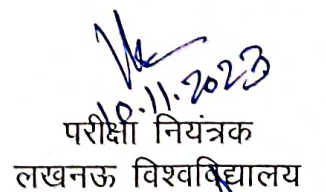 10.11.2023
परीक्षा नियंत्रक
लखनऊ विश्वविद्यालय